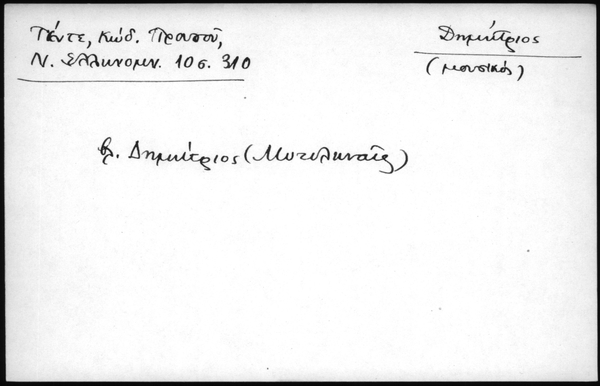 Πέντε, Κώδ. Πρωτοῦ,
Ν. Ἑλληνομν. 10 σ. 310
Δημήτριος
(μουσικός)
βλ. Δημήτριος (Μυτιληναῖος)